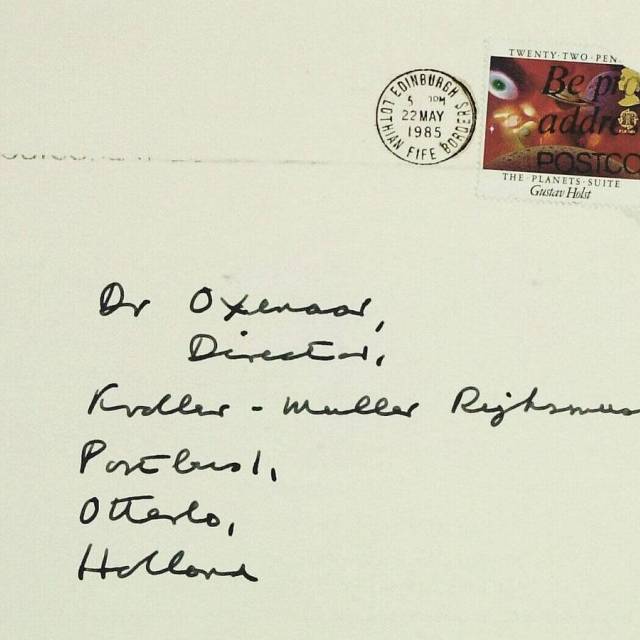 TWENTY·TWO·PEN
EDINBURGH
5 PM
22 MAY
1985
LOTHIAN FIFE BORDERS
Be pr
addre
POSTCO
THE·PLANETS·SUITE
Gustav Holst
Dr Oxenaar,
Director,
Kroller - Muller Rijksmus
Postbus 1,
Otterlo,
Holland